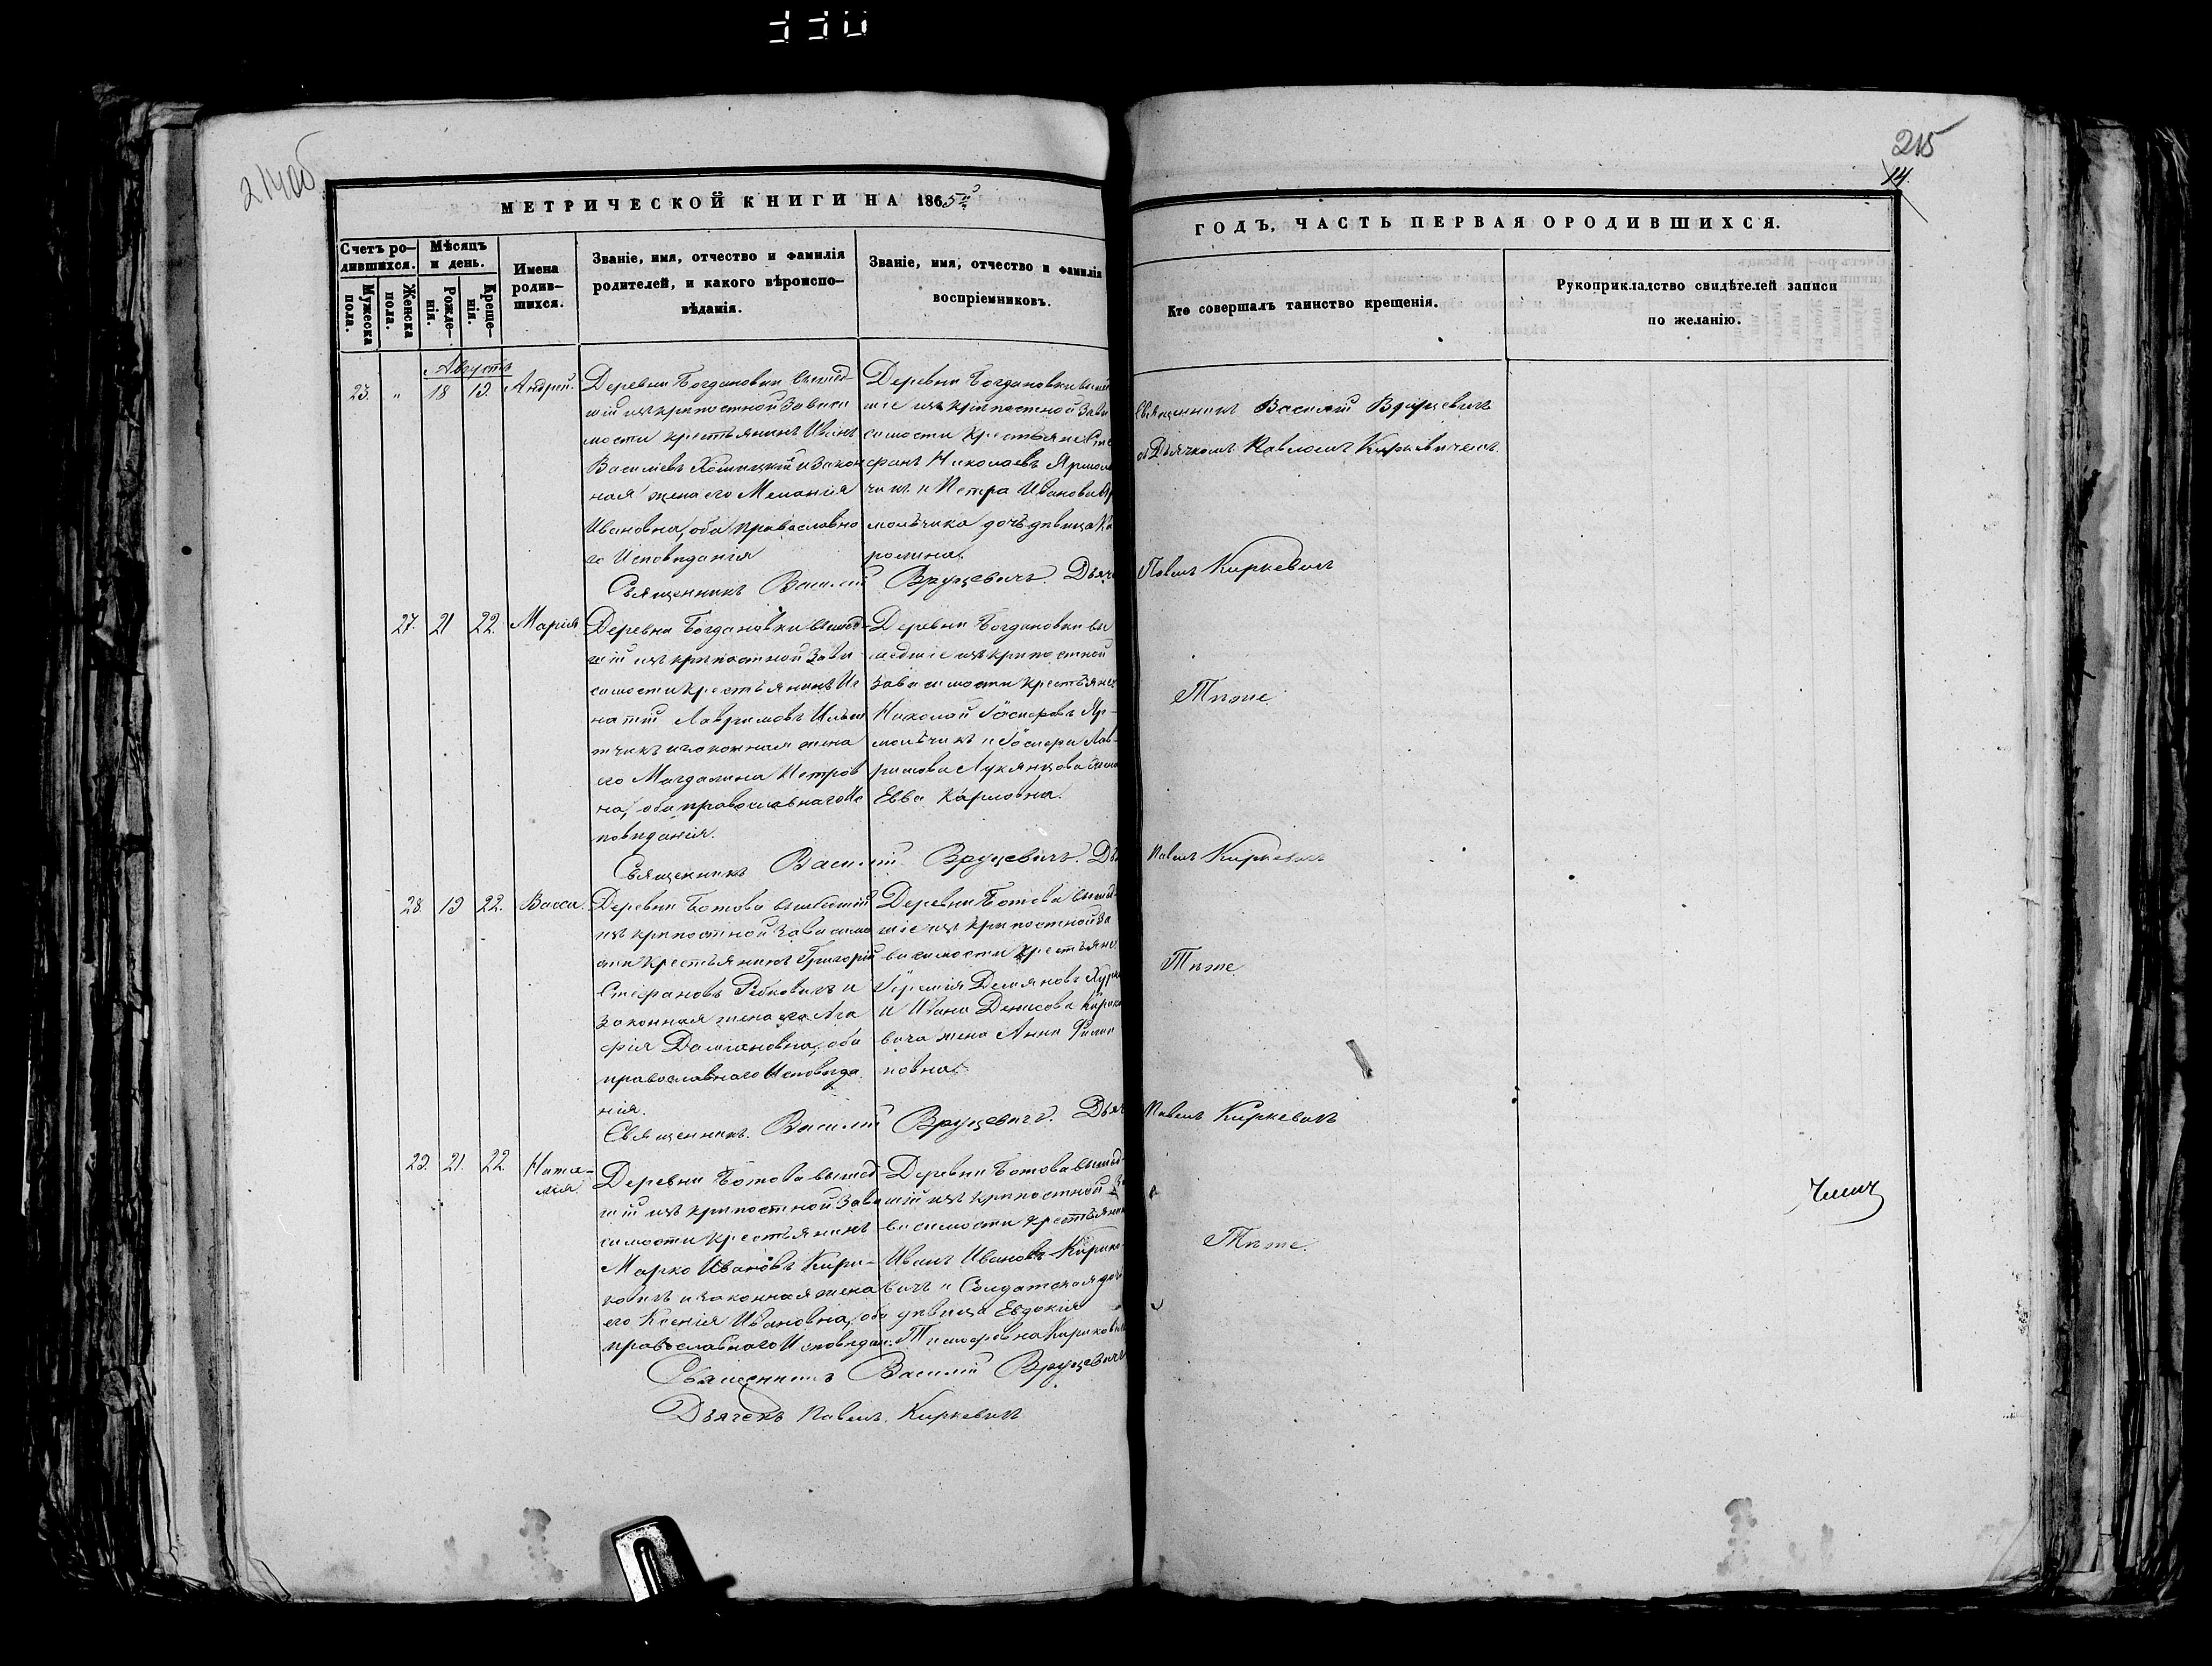 330
214об
215
14.
МЕТРИЧЕСКОЙ КНИГИ НА 1865й
ГОДЪ, ЧАСТЬ ПЕРВАЯ О РОДИВШИХСЯ.
Счетъ ро-
дившихся.
Мужеска
пола.
Женска
пола.
Мѣсяцъ
и день.
Рожде-
нія.
Креще-
нія.
Имена
родив-
шихся.
Званіе, имя, отчество и фамилія
родителей, и какого вѣроиспо-
вѣданія.
Званіе, имя, отчество и фамилія
воспріемниковъ.
Кто совершалъ таинство крещенія.
Рукоприкладство свидѣтелей записи
по желанію.
Августъ
23. " 18 19. Андрей.
Деревни Богдановки вышед-
шій изъ крѣпостной Зависи
мости крестьянинъ Иванъ
Василіевъ и Закон
ная жена его Меланія
Ивановна, оба православна
го Исповѣданія
Деревни Богдановки вышед
шіе изъ крѣпостной Зави
симости Крестьяне Сте
фанъ Николаевъ Ярмоль
чикъ и Петра Иванова Яр
мольчика дочь дѣвица Ка
ролина.
Священникъ Василій Вруцевичъ
съ Дьячкомъ Павломъ Киркевичемъ.
Священникъ Василій Вруцевичъ. Дьяч
Павелъ Киркевичъ
27. 21 22. Марія
Деревни Богдановки вышед-
шій изъ крѣпостной Зави-
симости Крестьянинъ Иг
натій Лавриновъ
тчикъ и законная жена
его Магдалина Петров
на, оба православнаго Ис
повѣданія.
Деревни Богдановки вы
шедшіе изъ крѣпостной
Зависимости Крестьяне
Николай Гасперовъ Яр-
мольчикъ и Гаспера Лав-
ринова Лукянцова жена
Евва Карловна.
Тѣже.
Священникъ Василій Вруцевичъ. Дья
Павелъ Киркевичъ
28. 19 22. Васса.
Деревни Ботова вышедшій
изъ крѣпостной Зависимо
сти Крестьянинъ Григорій
Стефановъ и
Законная жена его Ага
фія Даміановна, оба
православнаго Исповѣда
нія.
Деревни Ботова вышед-
шіе изъ крѣпостной За
висимости Крестьяне
Іеремія Деміановъ
и Ивана Денисова Кирико
вича жена Анна Филип
повна.
Тѣже
Священникъ. Василій Вруцевичъ. Дьяч
Павелъ Киркевичъ
29. 21. 22. Ната-
лія.
Деревни Ботова вышед
шій изъ крѣпостной Зави
симости Крестьянинъ
Марко Ивановъ Кири-
ковичъ и законная жена
его Ксенія Ивановна, оба
православнаго Исповѣдан.
Деревни Ботова вышед-
шій изъ крѣпостной За
висимости крестьянинъ
Иванъ Ивановъ Кирико-
вичъ и Солдатская дочь
дѣвица Евдокія
Тимофеевна Кирикович
Тѣже.
Священникъ Василій Вруцевичъ
Дьячекъ Павелъ Киркевичъ